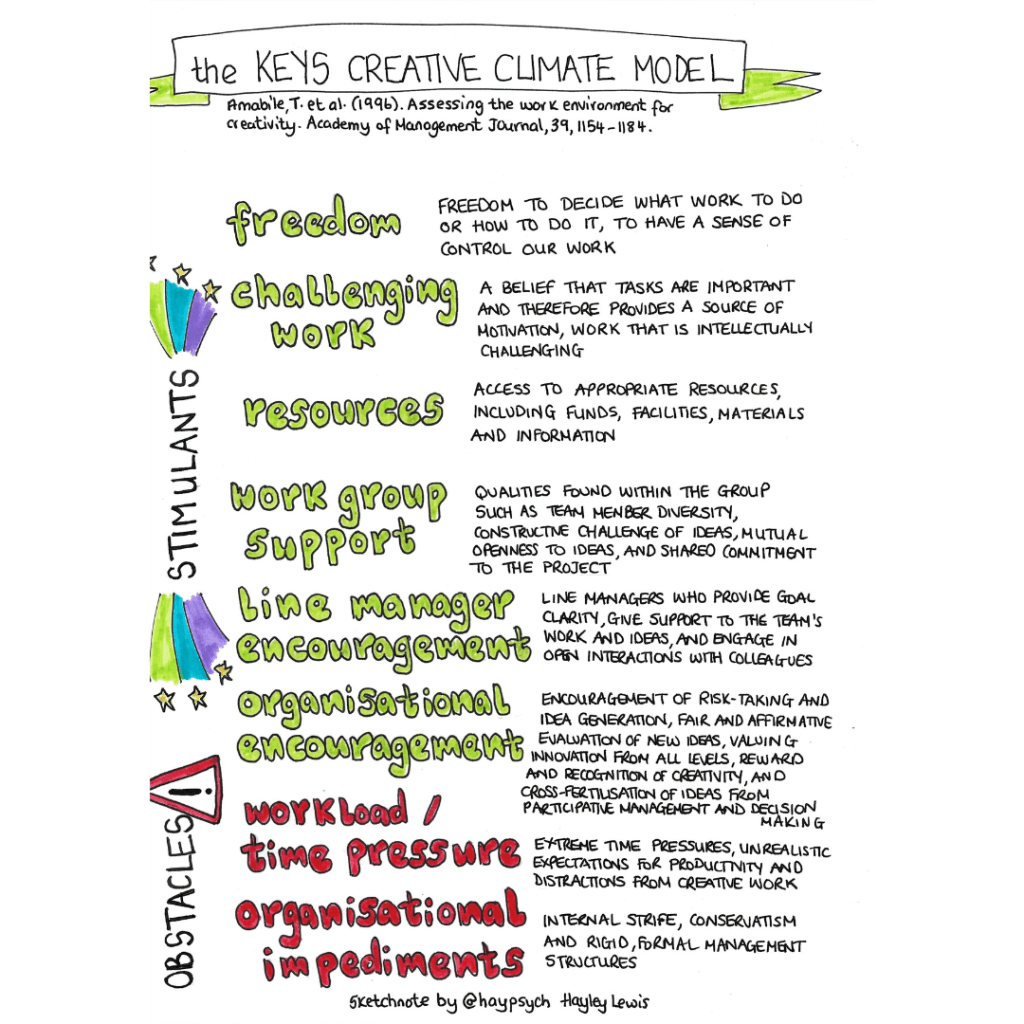 the KEYS CREATIVE CLIMATE MODEL
Amabile, T. et al. (1996). Assessing the work environment for
creativity. Academy of Management Journal, 39, 1154-1184.
freedom
FREEDOM TO DECIDE WHAT WORK TO DO
OR HOW TO DO IT, TO HAVE A SENSE OF
CONTROL OUR WORK
STIMULANTS
challenging
work
A BELIEF THAT TASKS ARE IMPORTANT
AND THEREFORE PROVIDES A SOURCE OF
MOTIVATION, WORK THAT IS INTELLECTUALLY
CHALLENGING
resources
ACCESS TO APPROPRIATE RESOURCES,
INCLUDING FUNDS, FACILITIES, MATERIALS
AND INFORMATION
work group
support
QUALITIES FOUND WITHIN THE GROUP
SUCH AS TEAM MEMBER DIVERSITY,
CONSTRUCTIVE CHALLENGE OF IDEAS, MUTUAL
OPENNESS TO IDEAS, AND SHARED COMMITMENT
TO THE PROJECT
line manager
encouragement
LINE MANAGERS WHO PROVIDE GOAL
CLARITY, GIVE SUPPORT TO THE TEAM'S
WORK AND IDEAS, AND ENGAGE IN
OPEN INTERACTIONS WITH COLLEAGUES
organisational
encouragement
ENCOURAGEMENT OF RISK-TAKING AND
IDEA GENERATION, FAIR AND AFFIRMATIVE
EVALUATION OF NEW IDEAS, VALUING
INNOVATION FROM ALL LEVELS, REWARD
AND RECOGNITION OF CREATIVITY, AND
CROSS-FERTILISATION OF IDEAS FROM
PARTICIPATIVE MANAGEMENT AND DECISION
MAKING
OBSTACLES
!
workload /
time pressure
EXTREME TIME PRESSURES, UNREALISTIC
EXPECTATIONS FOR PRODUCTIVITY AND
DISTRACTIONS FROM CREATIVE WORK
organisational
impediments
INTERNAL STRIFE, CONSERVATISM
AND RIGID, FORMAL MANAGEMENT
STRUCTURES
Sketchnote by @haypsych Hayley Lewis